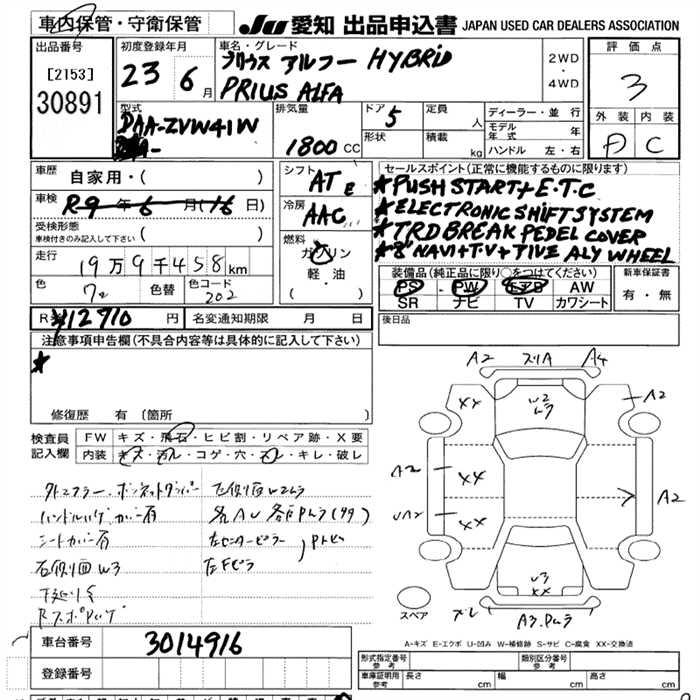 車内保管・守衛保管
JU 愛知 出品申込書 JAPAN USED CAR DEALERS ASSOCIATION
出品番号
[2153]
30891
初度登録年月
23 6 月
車名・グレード
プリウス アルファー HYBRID
PRIUS ALFA
2WD
・
4WD
評価点
3
外装 内装
D C
型式
DAA-ZVW41W
DAA-
排気量
1800 CC
ドア 5
形状
定員 人
積載 kg
ディーラー・並行
モデル年式 年
ハンドル 左・右
車歴
自家用・( )
車検
R9 年 6 月(16 日)
受検形態
車検付きのみ記入して下さい ( )
走行
19万9千458km
色 色替 色コード
202
シフト
AT
冷房
AAC
燃料
ガソリン
軽・油
( )
セールスポイント(正常に機能するものに限ります)
★PUSH START+E.T.C
★ELECTRONIC SHIFT SYSTEM
★TRD BREAK PEDEL COVER
★8" NAVI+T.V+TIVE ALY WHEEL
装備品(純正品に限り○をつけてください)
PS・PW エアB AW
SR ナビ TV カワシート
新車保証書
有・無
R ¥12710 円
名変通知期限 月 日
後日品
注意事項申告欄(不具合内容等は具体的に記入して下さい)
★
修復歴 有 [箇所 ]
検査員記入欄
FW キズ・飛石・ヒビ割・リペア跡・X要
内装 キズ・汚レ・コゲ・穴・ルレ・キレ・破レ
ハンドルハゲ カバー有
シートカバー有
右側面W3
下廻りサビ
左側面W2ムラ
A2 スリA A4
XX W2 ムラ A2
A2 XX
UA2 XX
A2
W3
XX
スペア
ズレ A3.Pムラ
A-キズ E-エクボ U-凹み W-補修跡 S-サビ C-腐食 XX-交換済
車台番号
3014916
登録番号
形式指定番号 参考
類別区分番号 参考
車庫証明用 参考 長さ cm 幅 cm 高さ cm